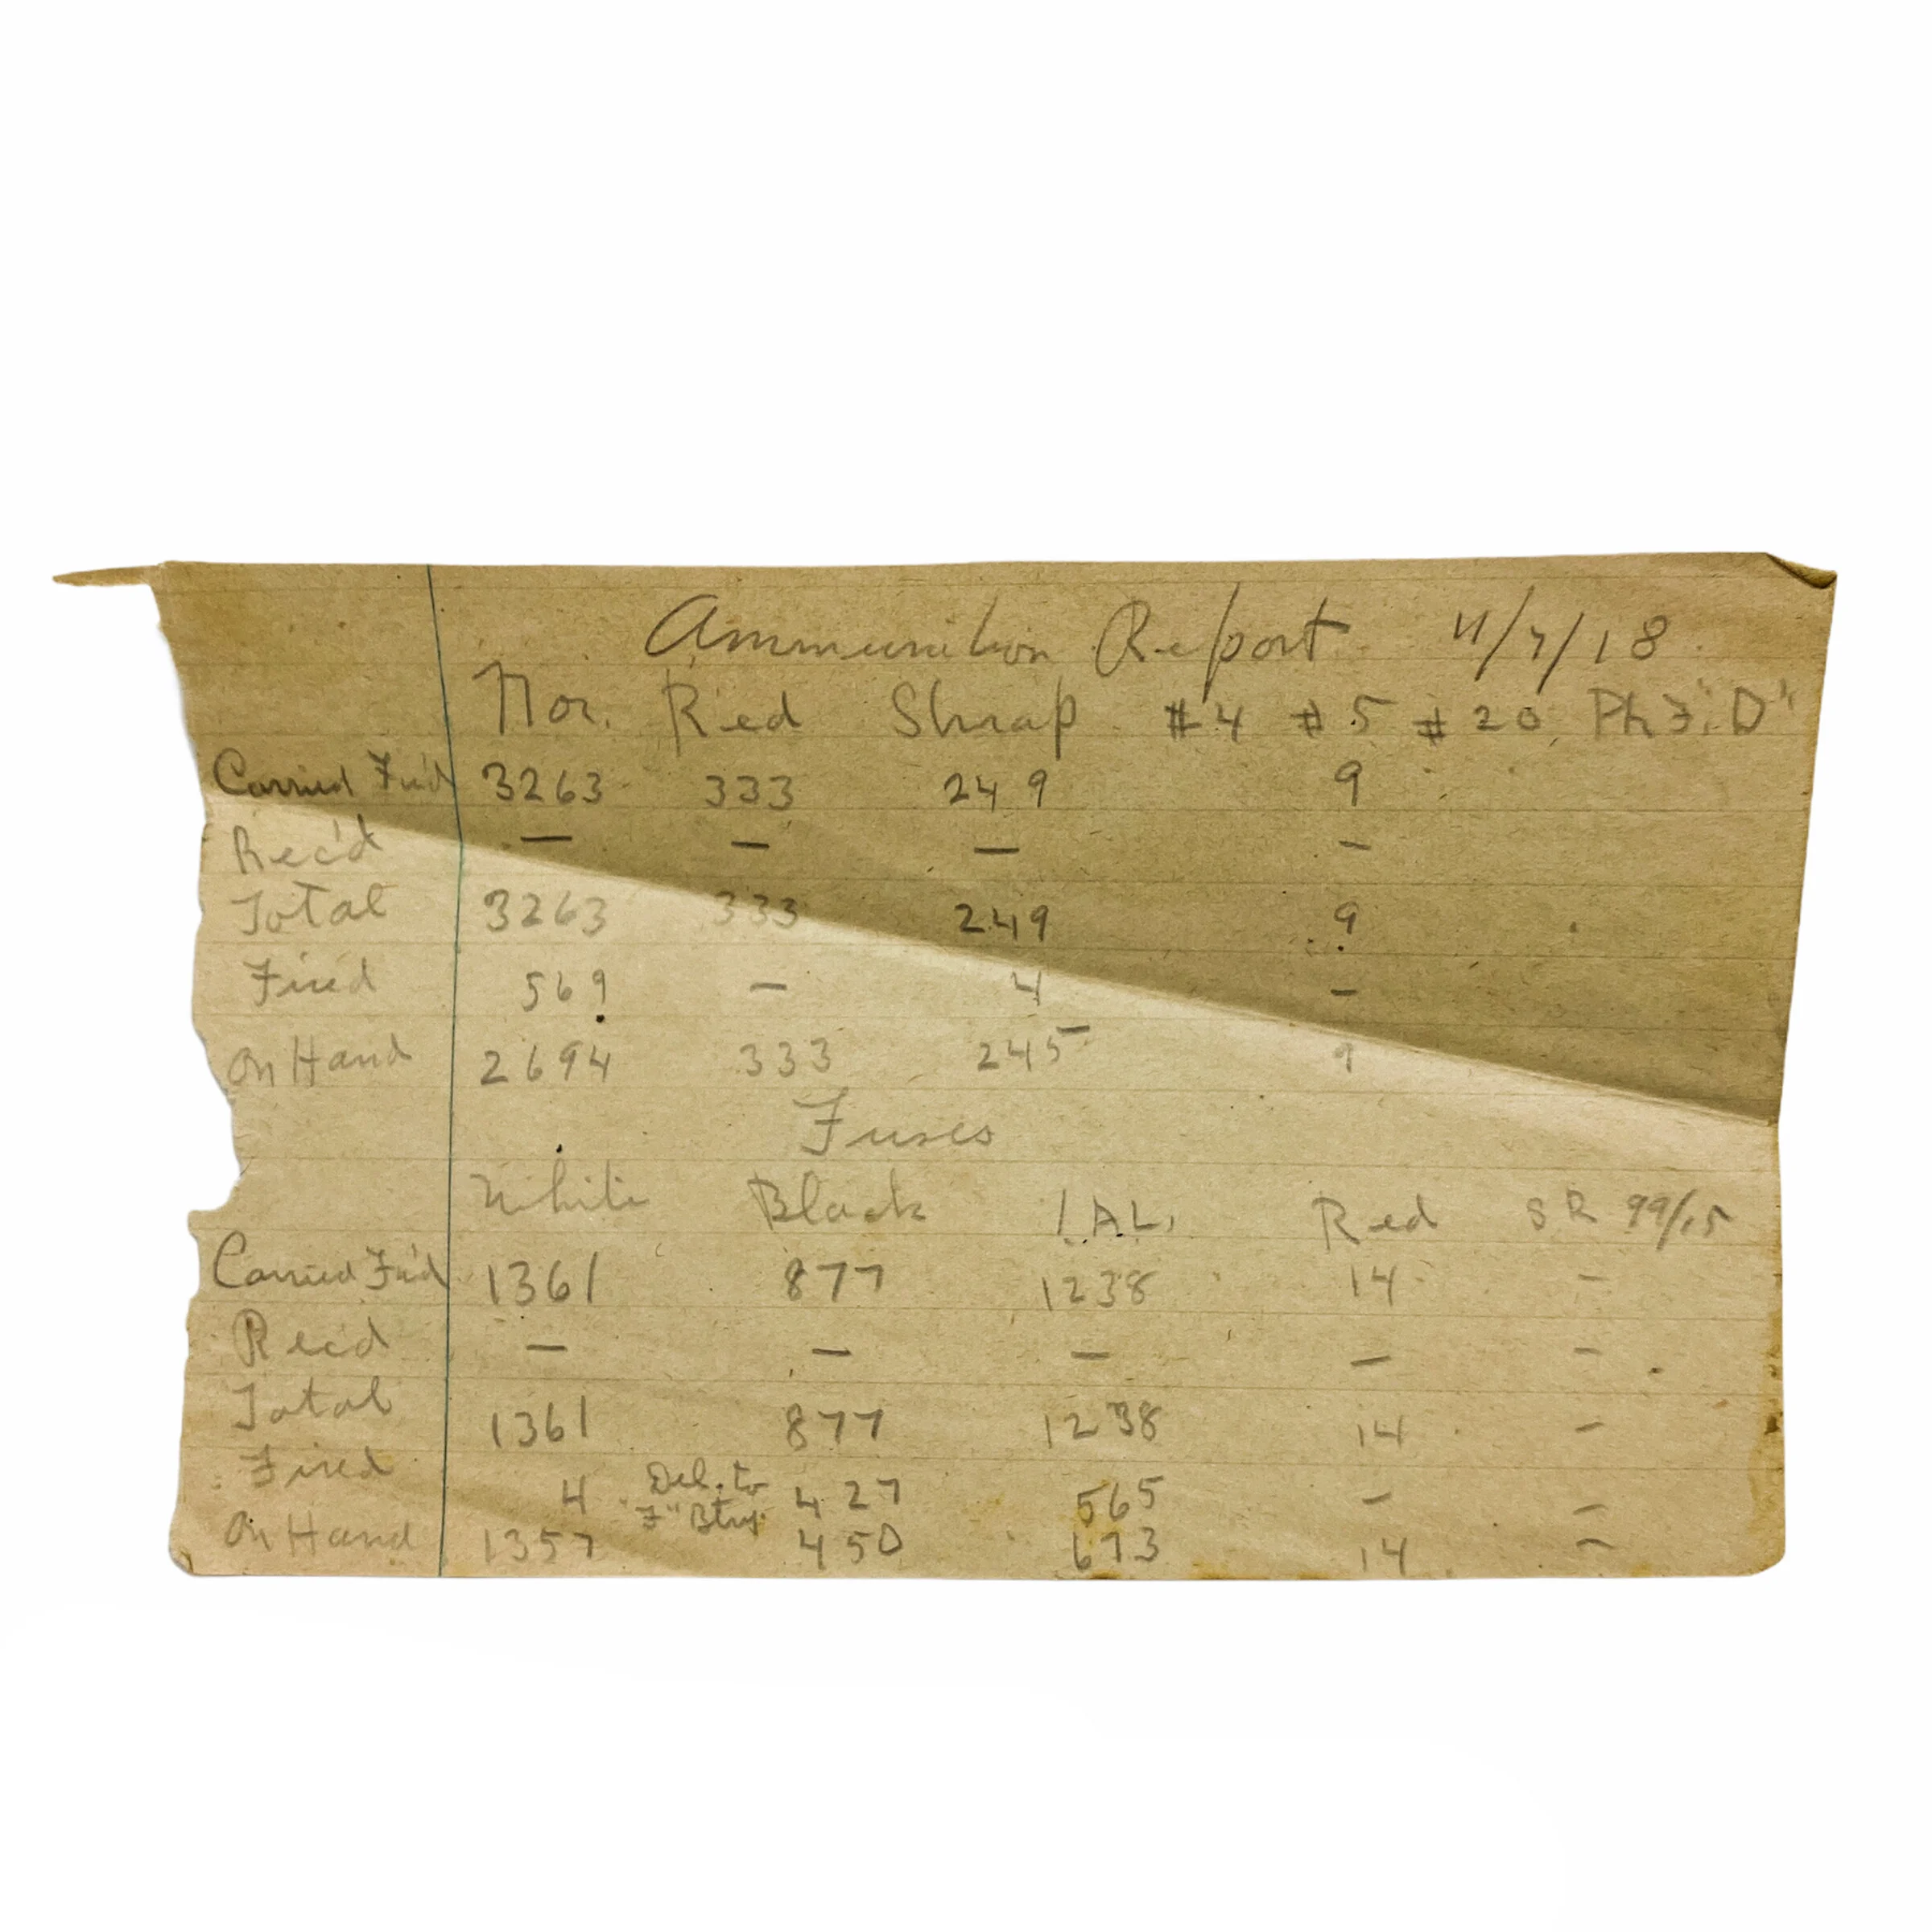 Ammunition Report 11/7/18
Nor. Red Shrap #4 #5 #20 Ph 7. "D"
Carried Fw'd 3263 333 249 9
Rec'd — — — —
Total 3263 333 249 9
Fired 569 — 4 —
On Hand 2694 333 245 9
Fuses
White Black I.A.L. Red SR 99/15
Carried Fw'd 1361 877 1238 14 —
Rec'd — — — — —
Total 1361 877 1238 14 —
Fired 4 Del. to "F" Btry. 427 565 — —
On Hand 1357 450 673 14 —